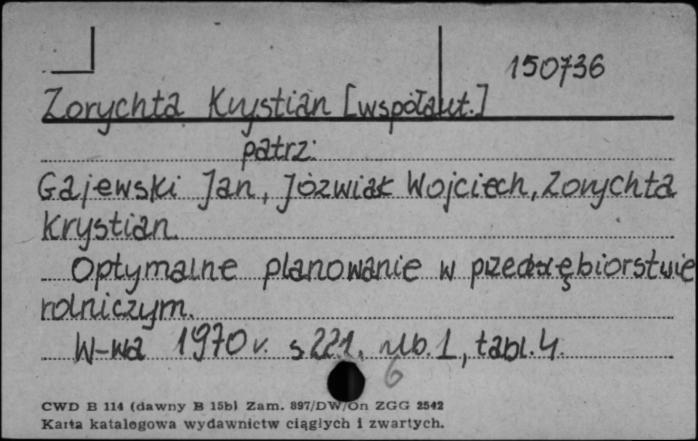 150736
Zorychta Krystian [współaut.]
patrz:
Gajewski Jan, Jóźwiak Wojciech, Zorychta
Krystian.
Optymalne planowanie w przedsiębiorstwie
rolniczym.
W-wa 1970 r. s. 221, nlb. 1, tabl. 4.
6
CWD B 114 (dawny B 15b) Zam. 897/DW/On ZGG 2542
Karta katalogowa wydawnictw ciągłych i zwartych.